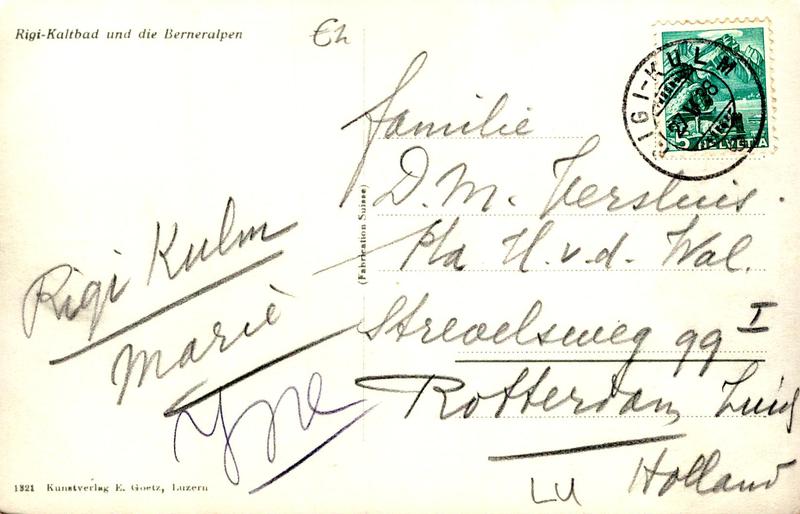 Rigi-Kaltbad und die Berneralpen
RIGI-KULM
5 HELVETIA
Familie
D. M. Versluis.
P/a H. v. d. Wal.
Strevelsweg 99 I
Rotterdam Zuid
Holland
Rigi Kulm
Marie
(Fabrication Suisse)
1321 Kunstverlag E. Goetz, Luzern
LU